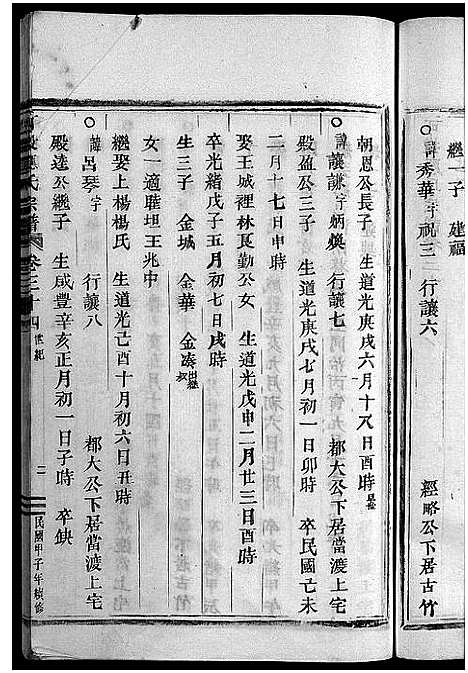 繼一子　建福
○諱秀華字祝三　行讓六　經略公下居古竹
朝恩公長子　生道光庚戌六月十八日酉時
○諱讓謙字炳煥　行讓七　都大公下居當渡上宅
殿盈公三子　生道光庚戌七月初一日卯時　卒民國己未
二月十七日申時
娶王城裡林艮勤公女　生道光戊申二月廿三日酉時
卒光緒戊子五月初七日戌時
生三子　金城　金華　金湊出繼
女一適聯坦王兆中
繼娶上楊楊氏　生道光己酉十月初六日丑時
○諱呂琴字　行讓八　都大公下居當渡上宅
殿達公繼子　生咸豐辛亥正月初一日子時　卒缺
氏宗譜　卷三十四　世紀　二　民國甲子年續修